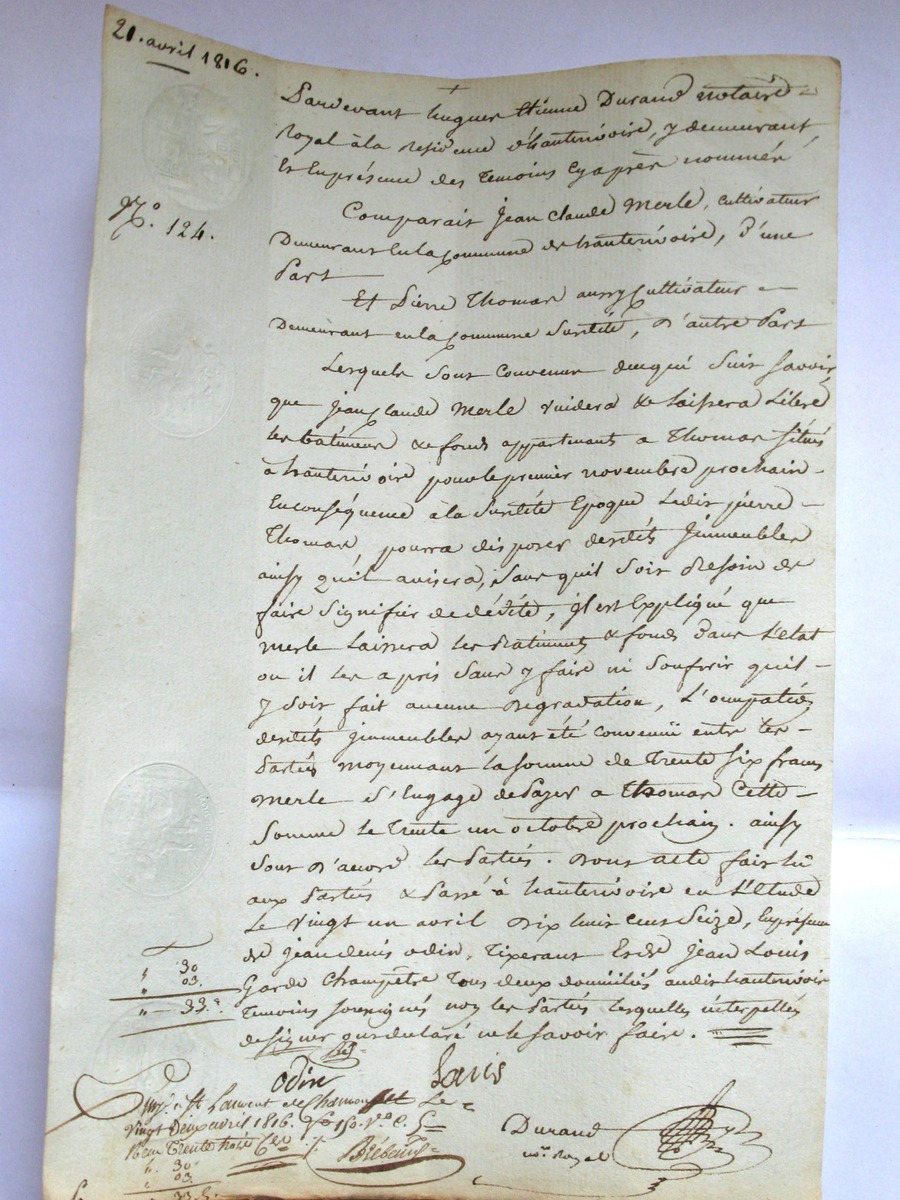 21. avril 1816.
Pardevant hugues Etienne Durand notaire
Royal à la residence d'hauterivoire, y demeurant,
Et En présence des Temoins Cy après nommés
N.o 124.
Comparait jean Claude Merle, cultivateur
Demeurant En la Commune de hauterivoire, d'une
Part
Et Pierre Thomas aussy Cultivateur
Demeurant en la Commune Susditte, d'autre Part
Lesquels sont Convenus de ce qui suit savoir,
que jean Claude Merle vuidera & laissera Libres
les batimens & fonds appartenants a Thomas situés
à hauterivoire pour le premier novembre prochain
En conséquence à la Susditte Epoque Ledit pierre
Thomas, pourra disposer desdits jmmeubles
ainsy qu'il avisera, sans qu'il soit Besoin de
faire signifier de dédite, jl est Expliqué que
merle Laissera les Batiments & fonds dans L'état
ou il les a pris sans y faire ni soufrir qu'il
y soit fait aucune degradation, L'occupation
desdits jmmeubles ayant été convenüe entre les
Parties moyennant la somme de Trente six francs
Merle s'Engage de Payer a Thomas Cette
Somme le Trente un octobre prochain. ainsy
sont d'accord les Parties. Dont acte fait lû
aux Parties & Passé à hauterivoire en L'Etude
Le vingt un avril Dix huit cent seize, En présence
de jean denis odin, Tixerant Et de jean Louis
Garde Champêtre Tous deux domiciliés audit hauterivoire
Temoins soussignés non les Parties lesquelles interpellés
de signer ont déclaré ne le savoir faire.
" 30
" 03.
" 33.c
odin
Durand
n.re Royal
Enrg. a St Laurent de Chamousset Le
Vingt Deux avril 1816. f.o 150. V.o C. 5
Reçu Trente trois Cen
" 30
" 03
" 33